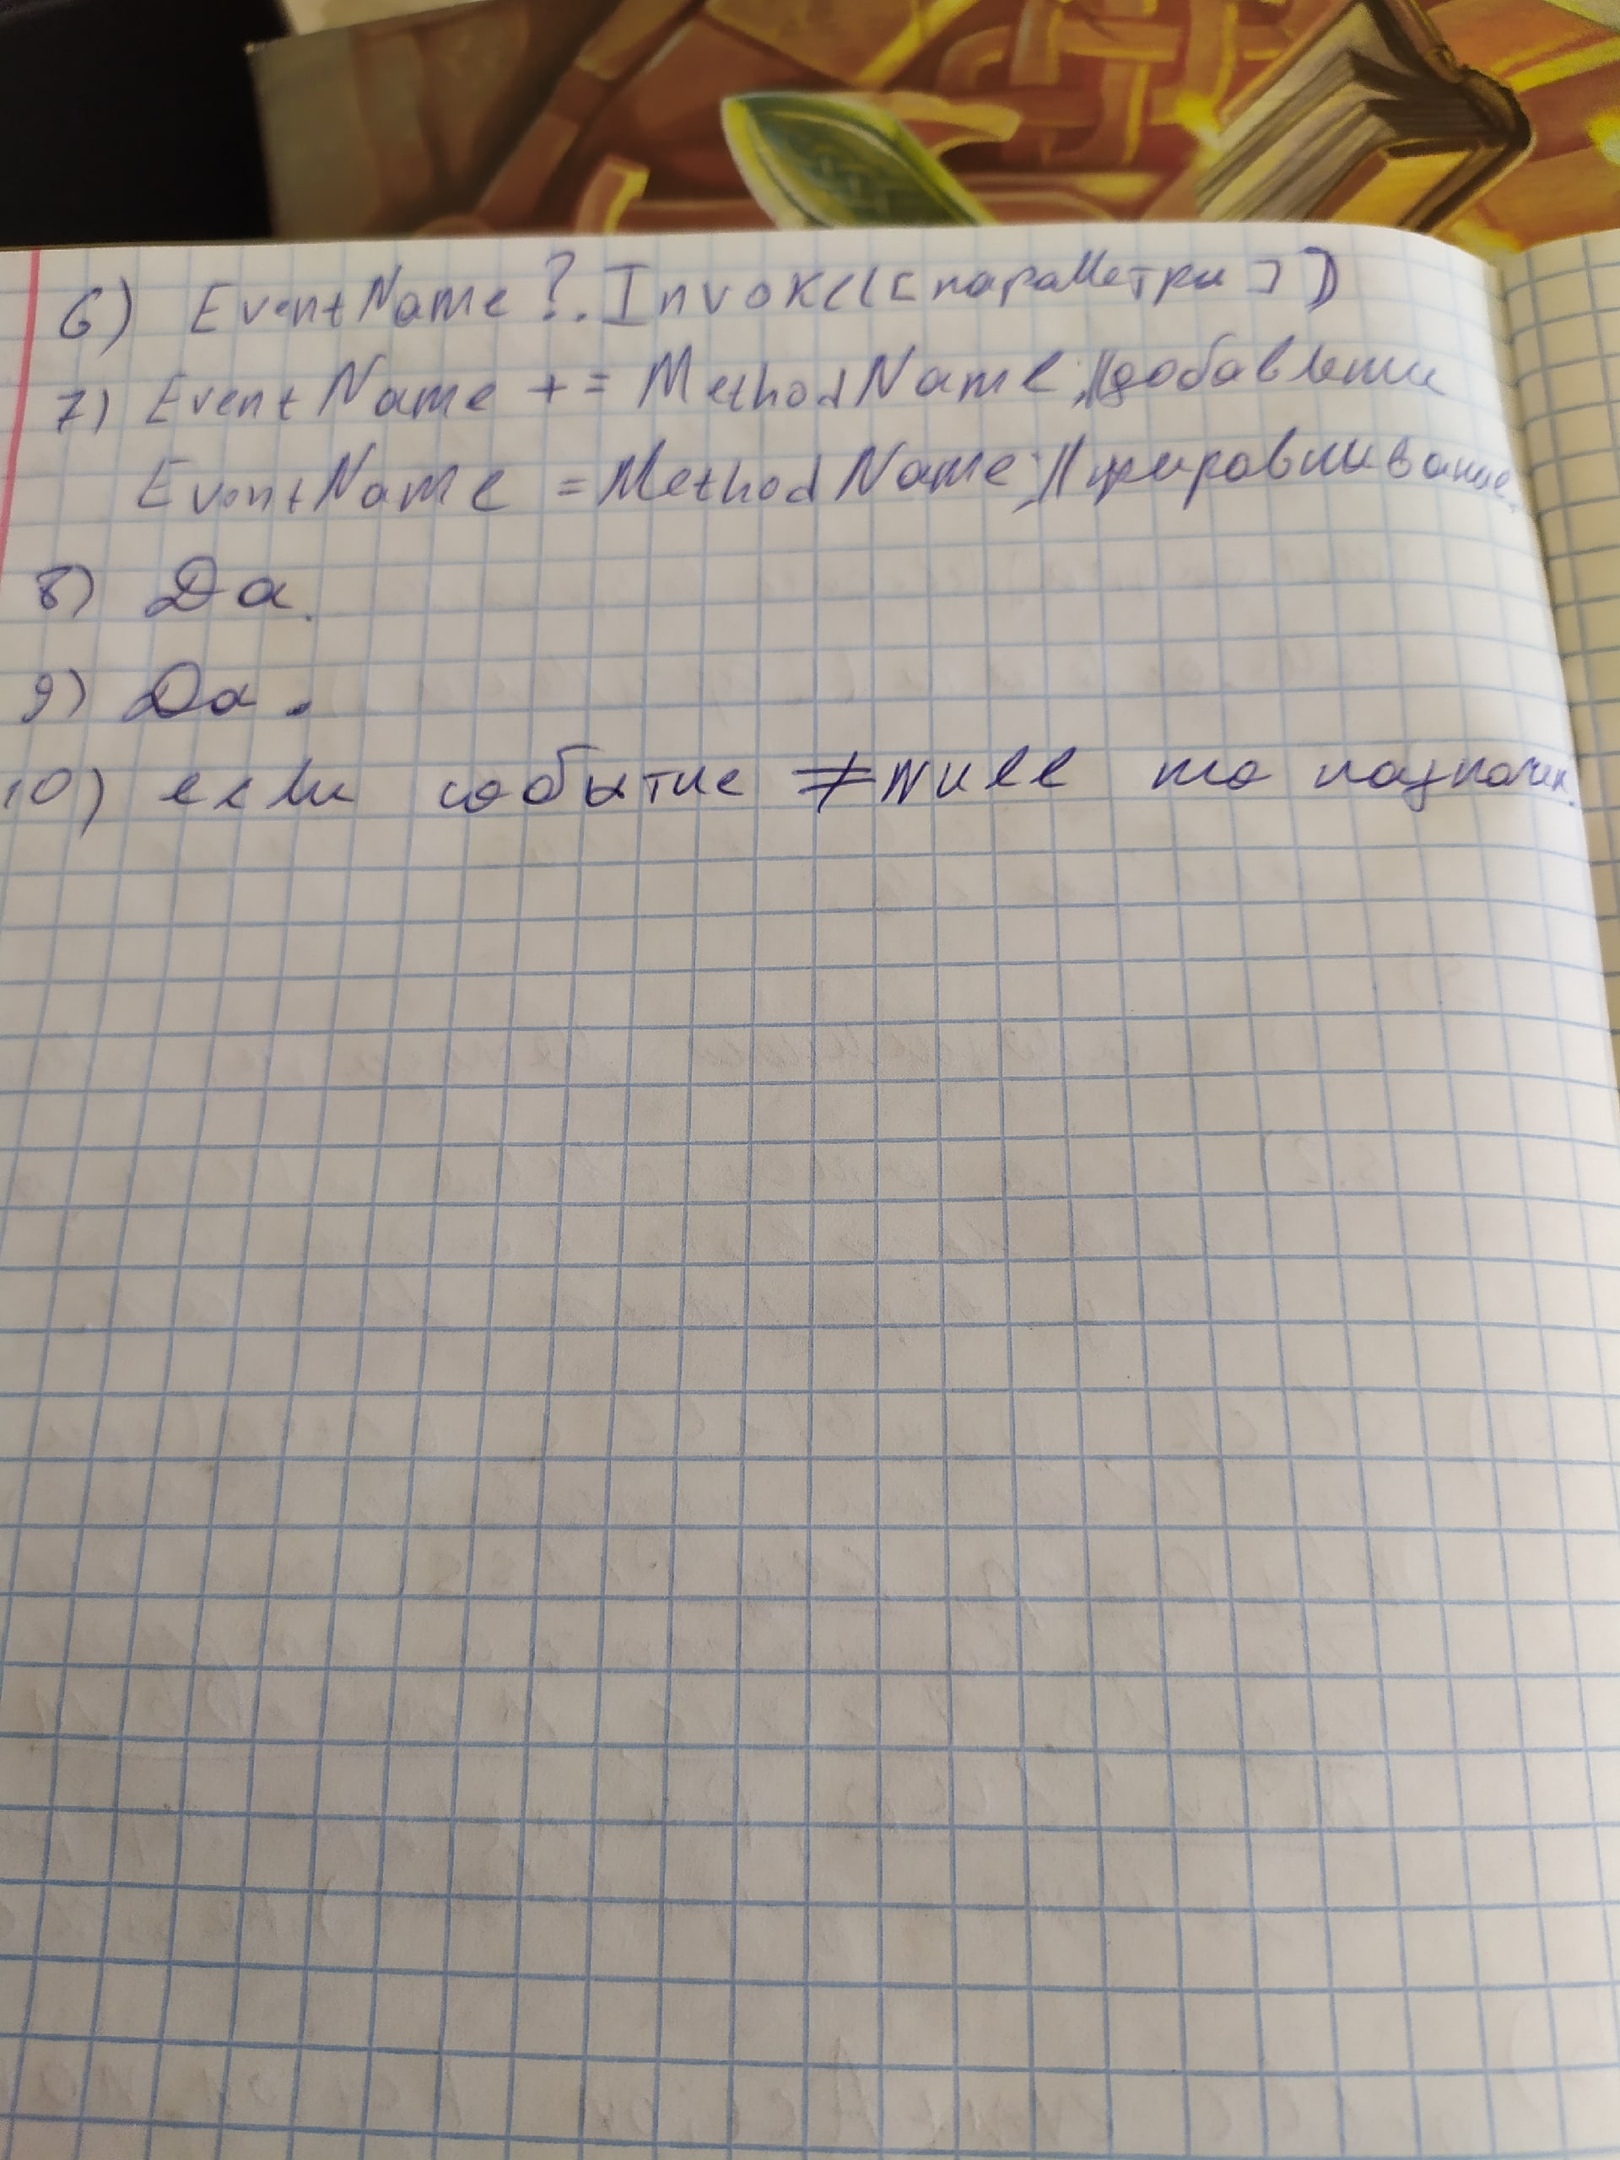 6) EventName?.Invoke([параметри])
7) EventName += MethodName; // добавление
EventName = MethodName; // приравнивание
8) Да.
9) Да.
10) если событие ≠ Null то